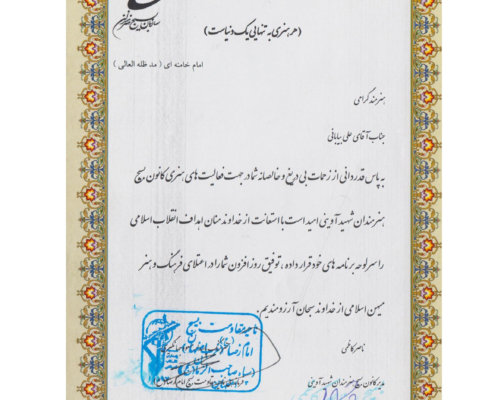 (هر هنری به تنهایی یک دنیاست)
امام خامنه ای ( مد ظله العالی )
هنرمند گرامی
جناب آقای علی بیابانی
به پاس قدردانی از زحمات بی دریغ و خالصانه شما در جهت فعالیت های هنری کانون بسیج
هنرمندان شهید آوینی امید است با استعانت از خداوند منان اهداف انقلاب اسلامی
را سرلوحه برنامه های خود قرار داده ، توفیق روز افزون شما را در اعتلای فرهنگ و هنر
میهن اسلامی از خداوند سبحان آرزومندیم .
ناحیه مقاومت بسیج
ناصر کاظمی
مدیر کانون بسیج هنرمندان شهید آوینی